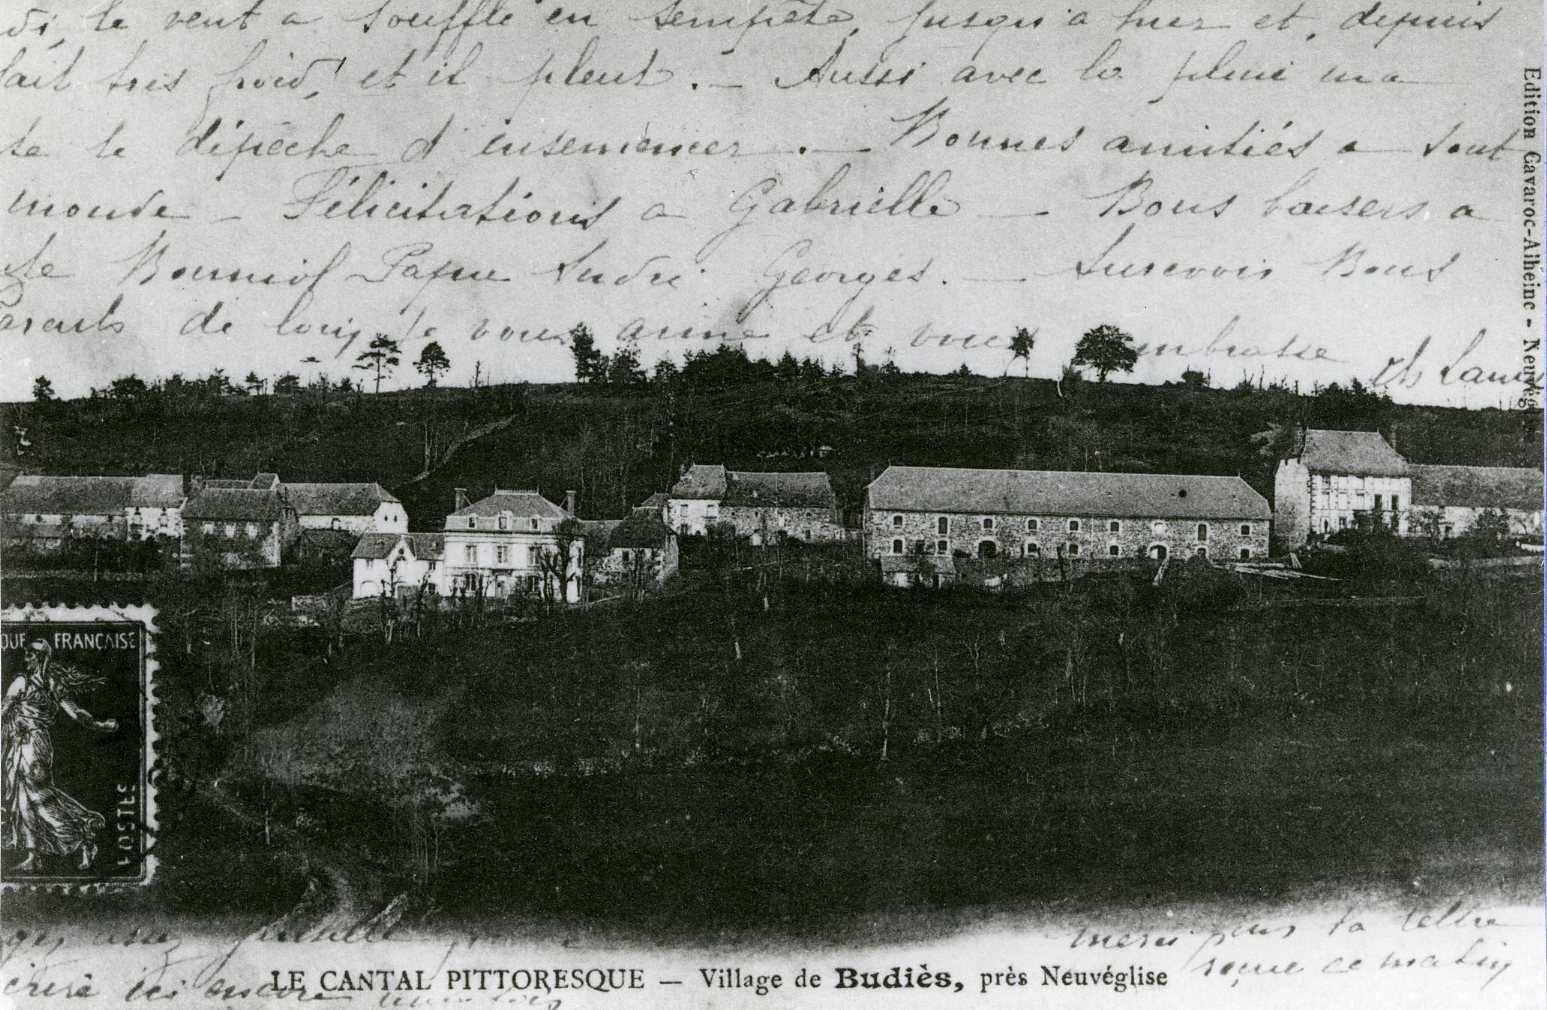 di, le vent a soufflé en tempête jusqu'a hier et, depuis
fait très froid, et il pleut. — Aussi avec la pluie ma
se le dépêche d'ensemencer. — Bonnes amitiés a tout
monde — Félicitations a Gabrielle — Bons baisers a
Bonniol Papue André Georges. — Aurevoir Bons
de loin Je vous aime et vous embrasse
Edition Cavaroc-Alheinc - Neuvég
QUE FRANÇAISE
POSTES
merci pour ta lettre
reçue ce matin
ici encore une fois
LE CANTAL PITTORESQUE — Village de Budiès, près Neuvéglise